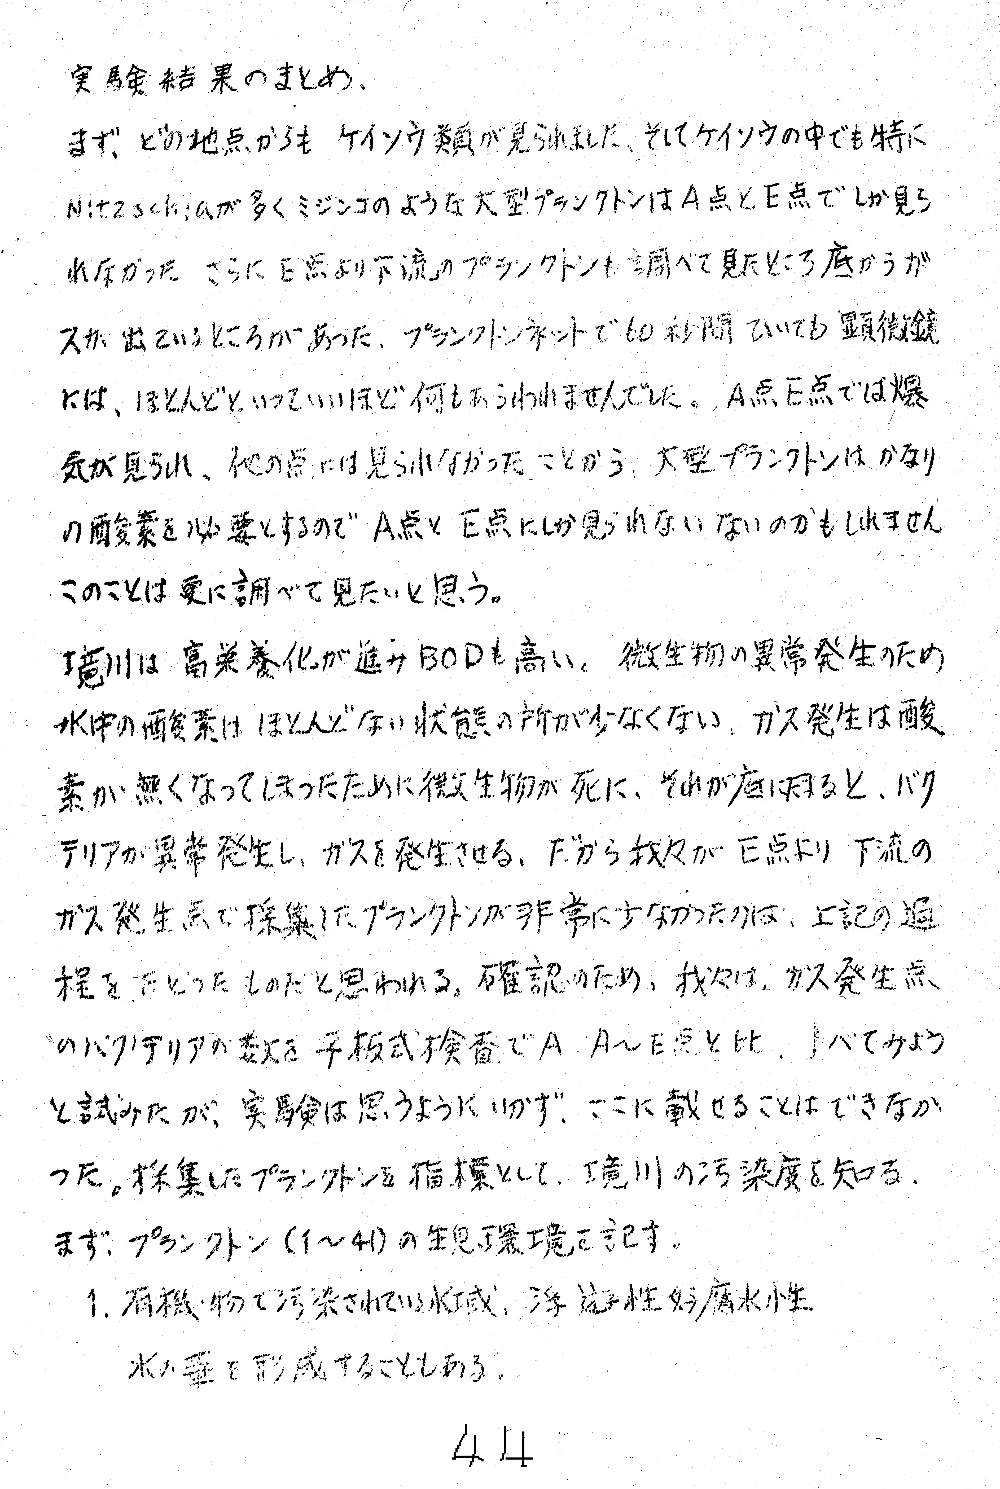 実験結果のまとめ、
まず、どの地点からも ケイソウ類が見られました、そしてケイソウの中でも特に
Nitzschiaが多くミジンコのような大型プランクトンはA点とE点でしか見ら
れなかった さらにE点より下流のプランクトンも調べて見たところ底からガ
スが出ているところがあった、プランクトンネットで60秒間ひいても顕微鏡
には、ほとんどといっていいほど何もあらわれませんでした。A点E点では爆
気が見られ、他の点には見られなかったことから、大型プランクトンはかなり
の酸素を必要とするのでA点とE点にしか見られないないのかもしれません
このことは更に調べて見たいと思う。
境川は富栄養化が進みBODも高い。微生物の異常発生のため
水中の酸素はほとんどない状態の所が少なくない、ガス発生は酸
素が無くなってしまったために微生物が死に、それが底に溜ると、バク
テリアが異常発生し、ガスを発生させる、だから我々がE点より下流の
ガス発生点で採集したプランクトンが非常に少なかったのは、上記の過
程をたどったものだと思われる。確認のため、我々は、ガス発生点
のバクテリアの数を平板式検査でA A〜E点と比 べてみよう
と試みたが、実験は思うようにいかず、ここに載せることはできなか
った。採集したプランクトンを指標として、境川の汚染度を知る、
まず、プランクトン(1〜41)の生息環境を記す。
1. 有機物で汚染されている水域、浮遊性 好腐水性
水の華を形成することもある、
44